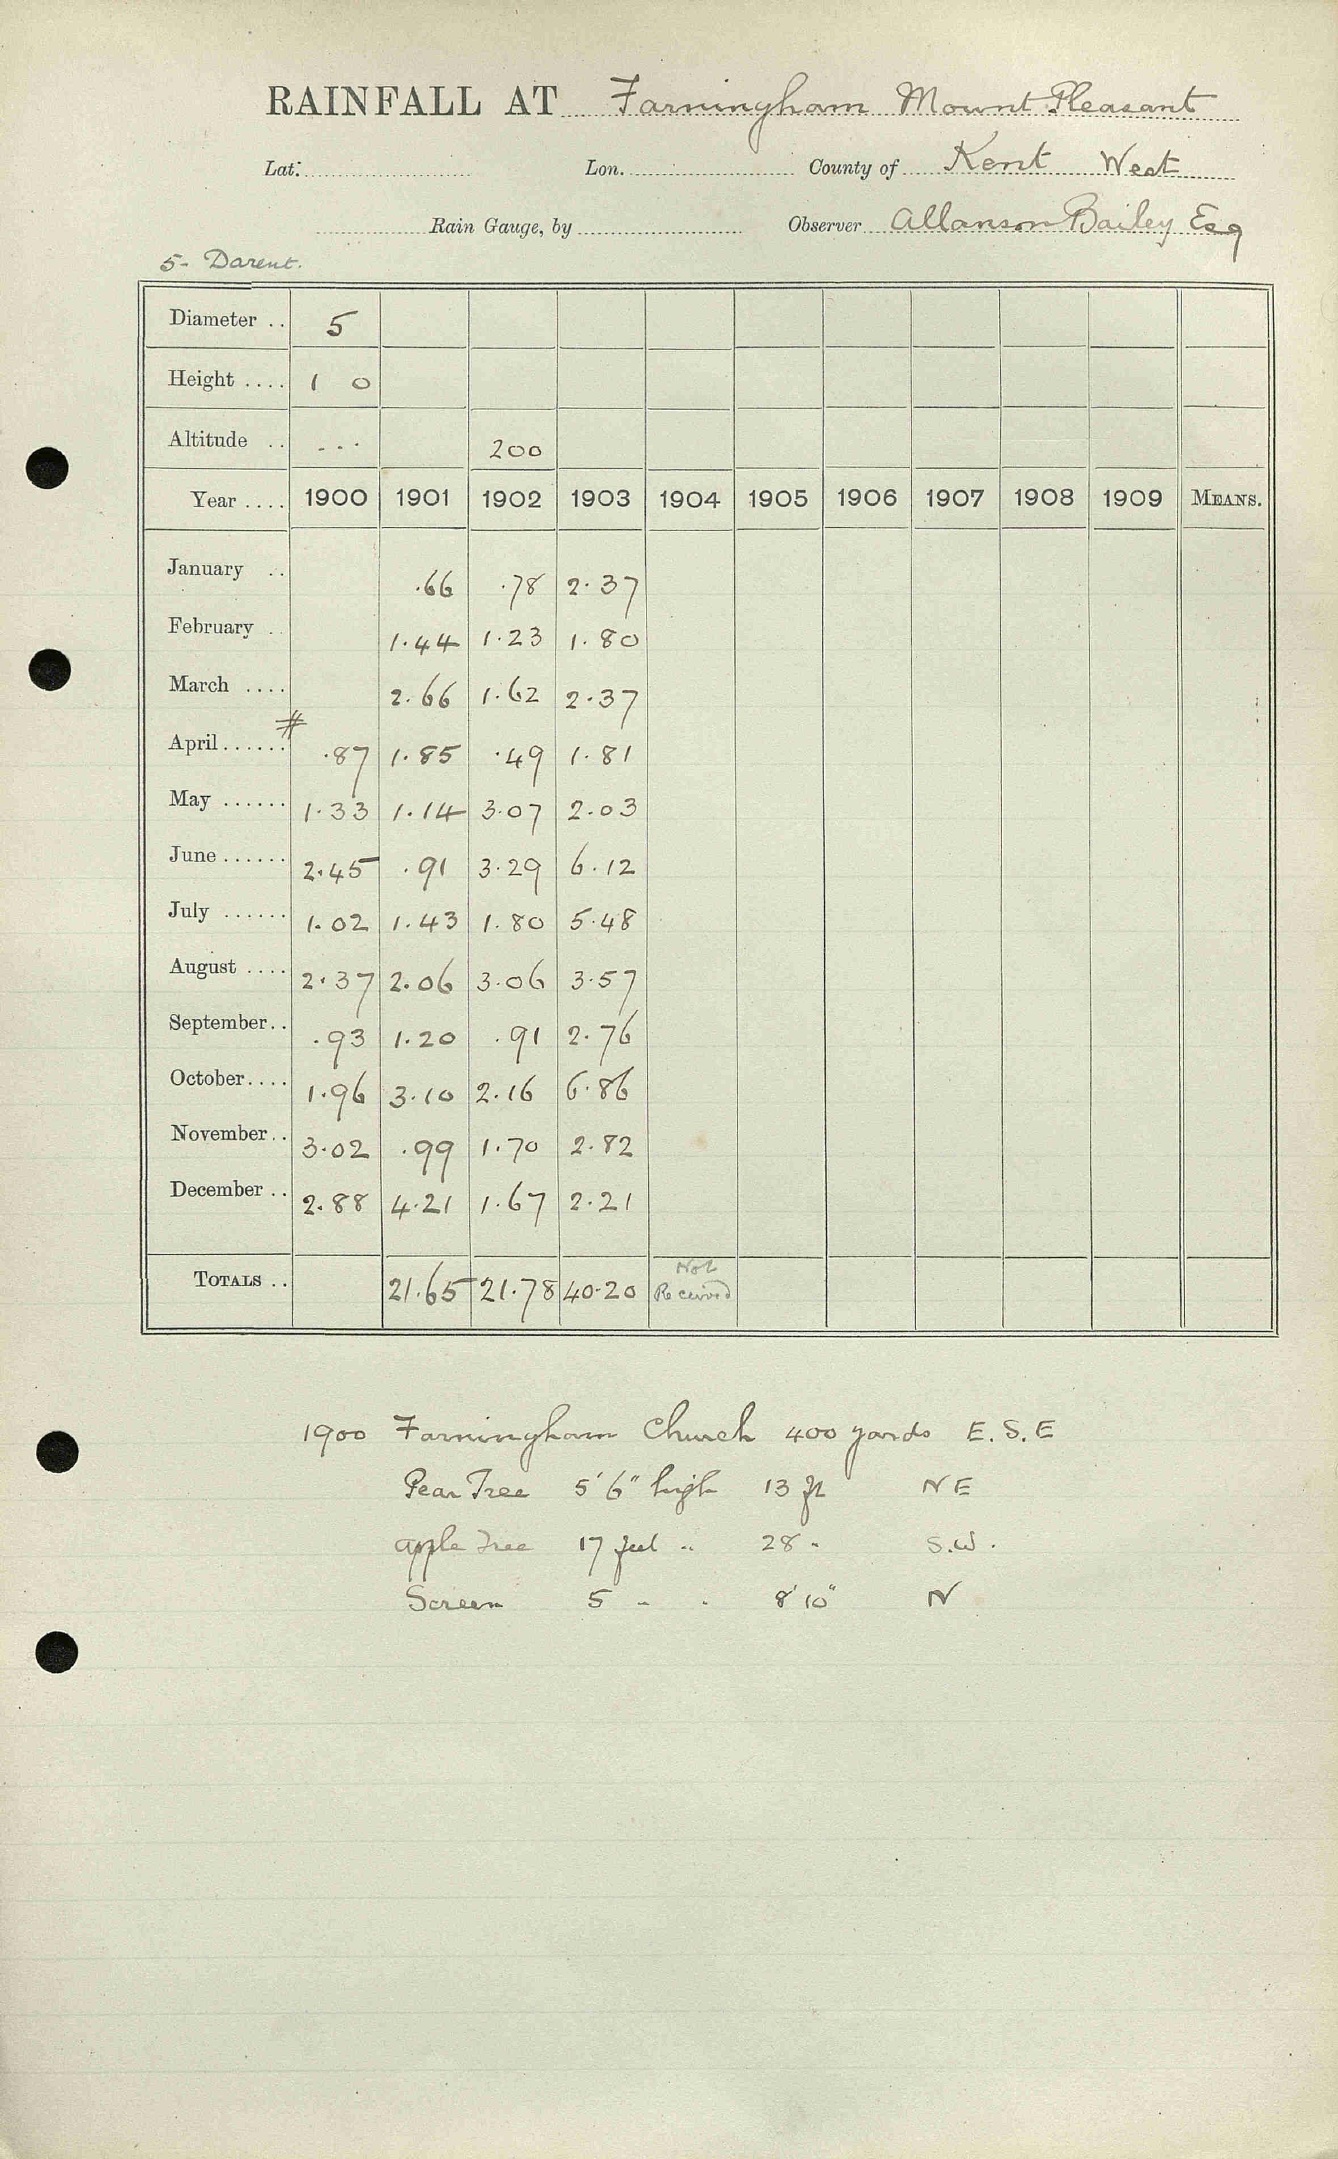 RAINFALL AT Farningham Mount Pleasant
Lat. Lon. County of Kent West
Rain Gauge, by Observer Allanson Bailey Esq
5- Darent.
Diameter .. 5
Height .... 1 0
Altitude .. ... 200
Year .... 1900 1901 1902 1903 1904 1905 1906 1907 1908 1909 MEANS.
January .. .66 .78 2.37
February .. 1.44 1.23 1.80
March .... 2.66 1.62 2.37
#
April ...... .87 1.85 .49 1.81
May ...... 1.33 1.14 3.07 2.03
June ...... 2.45 .91 3.29 6.12
July ...... 1.02 1.43 1.80 5.48
August .... 2.37 2.06 3.06 3.57
September .. .93 1.20 .91 2.76
October .... 1.96 3.10 2.16 6.86
November .. 3.02 .99 1.70 2.82
December .. 2.88 4.21 1.67 2.21
TOTALS .. 21.65 21.78 40.20 Not Received
1900 Farningham Church 400 yards E.S.E
Pear Tree 5'6" high 13 ft NE
apple Tree 17 feet " 28 " S.W.
Screen 5 " " 8'10" N